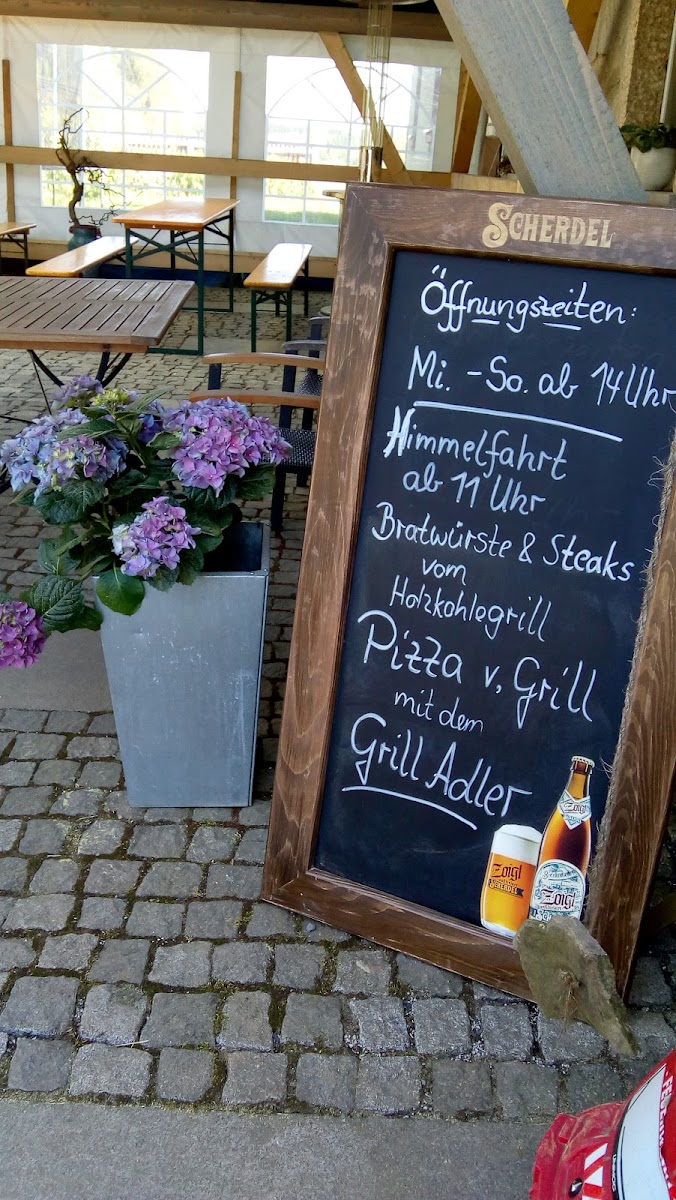 SCHERDEL
Öffnungszeiten:
Mi. - So. ab 14 Uhr
Himmelfahrt
ab 11 Uhr
Bratwürste & Steaks
vom
Holzkohlegrill
Pizza v. Grill
mit dem
Grill Adler
Zoigl
SCHERDEL
Zoigl
Zoigl